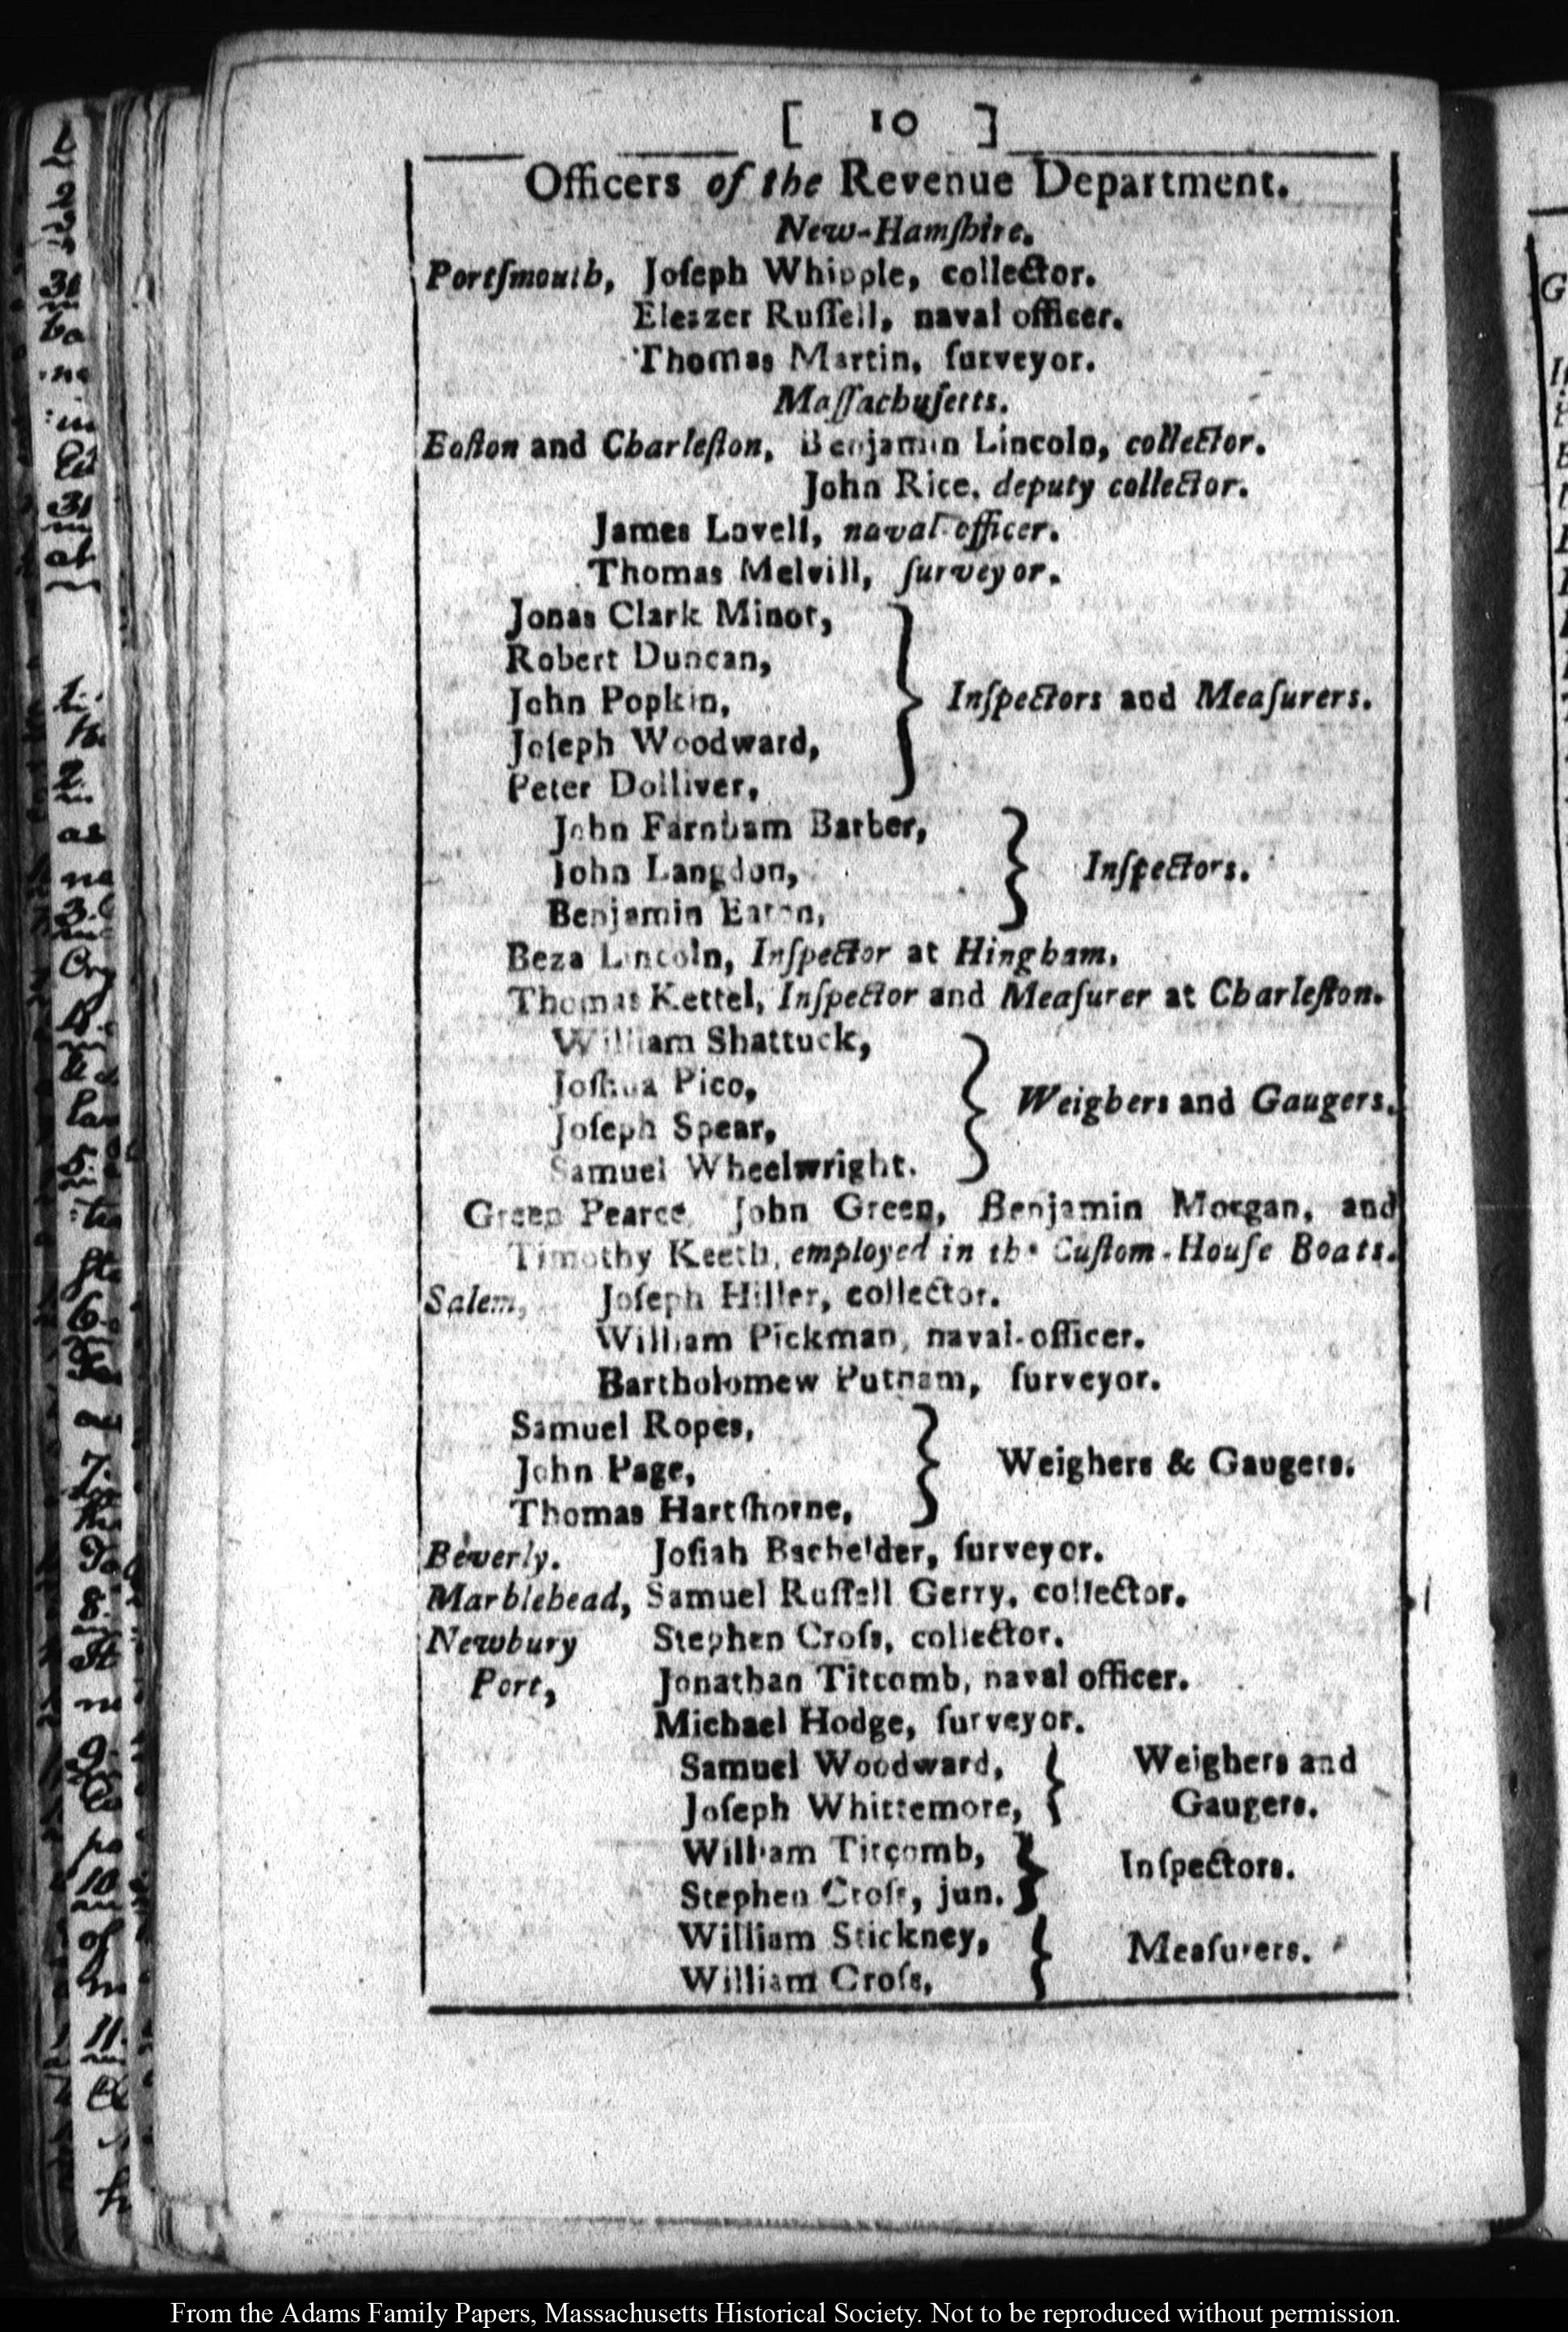 [ 10 ]
Officers of the Revenue Department.
New-Hamſhire.
Portſmouth, Joſeph Whipple, collector.
Eleazer Ruſſell, naval officer.
Thomas Martin, ſurveyor.
Maſſachuſetts.
Boſton and Charleſton, Benjamin Lincoln, collector.
John Rice, deputy collector.
James Lovell, naval officer.
Thomas Melvill, ſurveyor.
Jonas Clark Minot,
Robert Duncan,
John Popkin,
Inſpectors and Meaſurers.
Joſeph Woodward,
Peter Dolliver,
John Farnham Barber,
John Langdon,
Inſpectors.
Benjamin Eaton,
Beza Lincoln, Inſpector at Hingham.
Thomas Kettel, Inſpector and Meaſurer at Charleſton.
William Shattuck,
Joſhua Pico,
Weighers and Gaugers.
Joſeph Spear,
Samuel Wheelwright.
Green Pearce John Green, Benjamin Morgan, and
Timothy Keeth, employed in the Cuſtom-Houſe Boats.
Salem, Joſeph Hiller, collector.
William Pickman, naval-officer.
Bartholomew Putnam, ſurveyor.
Samuel Ropes,
John Page,
Weighers & Gaugers.
Thomas Hartſhorne,
Beverly. Joſiah Bachelder, ſurveyor.
Marblehead, Samuel Ruſſell Gerry, collector.
Newbury Stephen Croſs, collector.
Port, Jonathan Titcomb, naval officer.
Michael Hodge, ſurveyor.
Samuel Woodward, Weighers and
Joſeph Whittemore, Gaugers.
William Titcomb,
Inſpectors.
Stephen Croſs, jun.
William Stickney,
Meaſurers.
William Croſs,
From the Adams Family Papers, Massachusetts Historical Society. Not to be reproduced without permission.